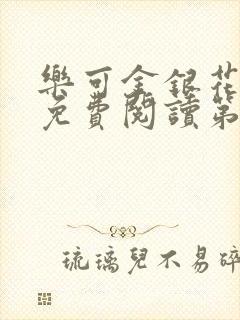 樂可金銀花
免費閱讀第
琉璃兒不易碎